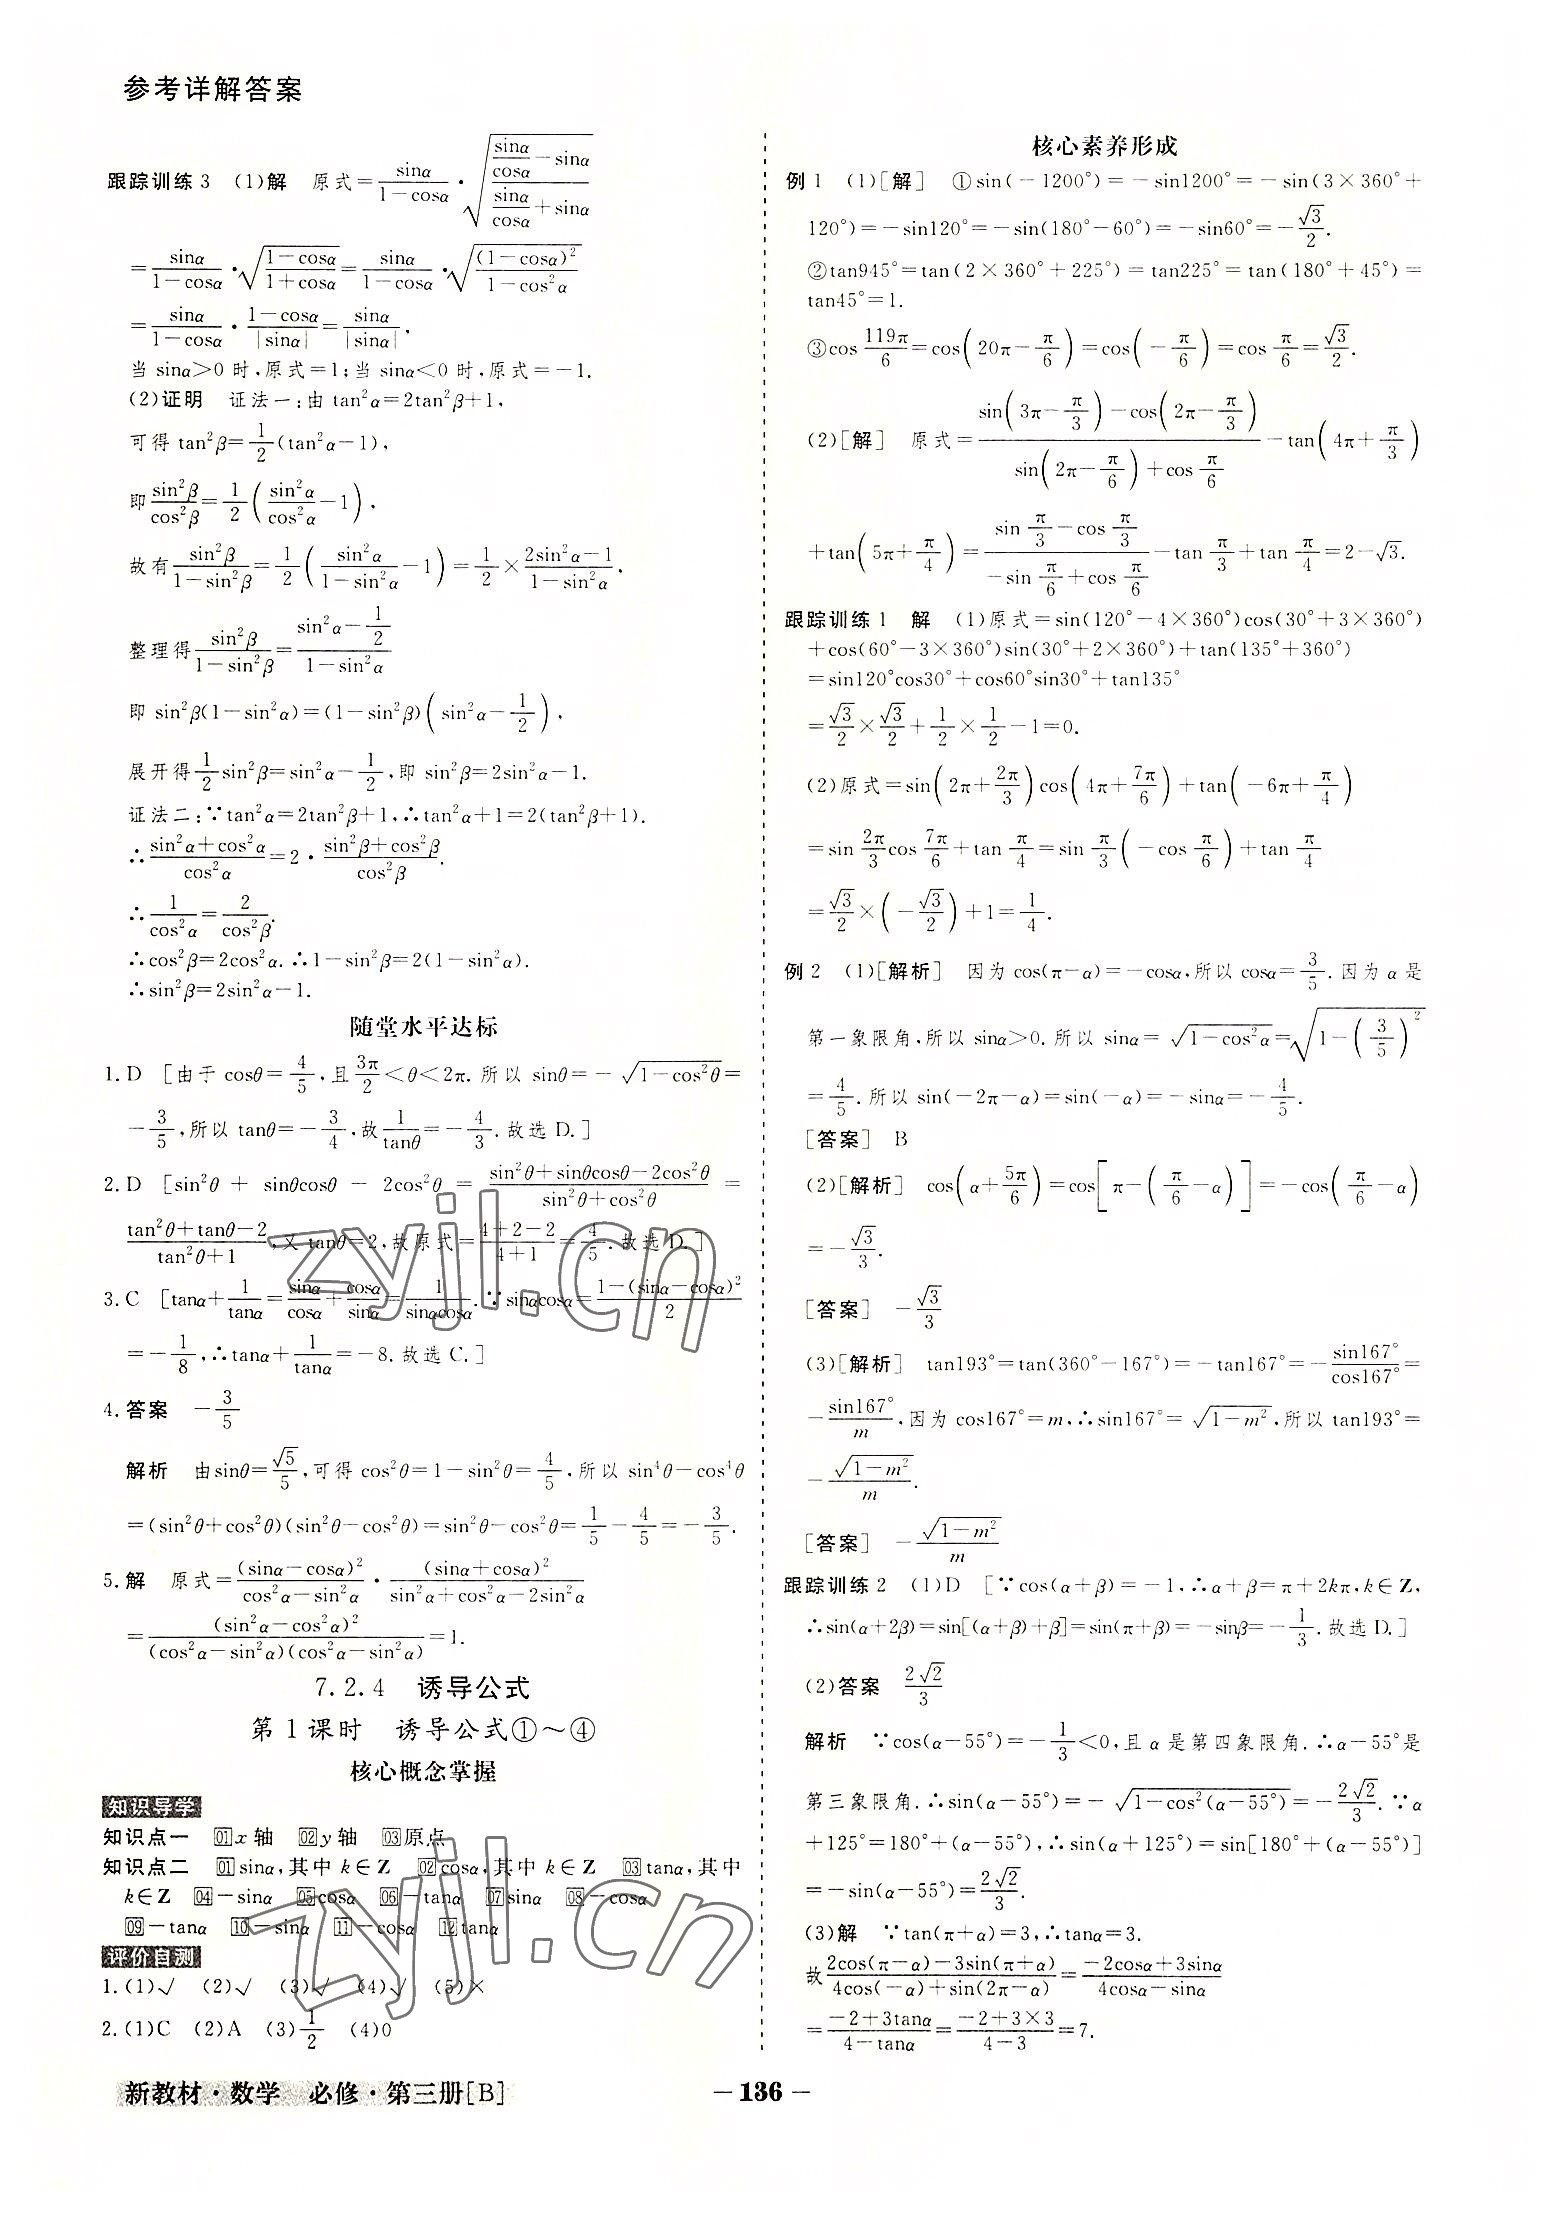 参考详解答案
跟踪训练3 (1)解 原式=$\frac{\sin\alpha}{1-\cos\alpha}\cdot\sqrt{\frac{\frac{\sin\alpha}{\cos\alpha}-\sin\alpha}{\frac{\sin\alpha}{\cos\alpha}+\sin\alpha}}$
$=\frac{\sin\alpha}{1-\cos\alpha}\cdot\sqrt{\frac{1-\cos\alpha}{1+\cos\alpha}}=\frac{\sin\alpha}{1-\cos\alpha}\cdot\sqrt{\frac{(1-\cos\alpha)^2}{1-\cos^2\alpha}}$
$=\frac{\sin\alpha}{1-\cos\alpha}\cdot\frac{1-\cos\alpha}{|\sin\alpha|}=\frac{\sin\alpha}{|\sin\alpha|}$,
当 sinα>0 时,原式=1;当 sinα<0 时,原式=-1.
(2)证明 证法一:由 tan²α=2tan²β+1,
可得 tan²β=$\frac{1}{2}$(tan²α-1),
即$\frac{\sin^2\beta}{\cos^2\beta}=\frac{1}{2}\left(\frac{\sin^2\alpha}{\cos^2\alpha}-1\right)$,
故有$\frac{\sin^2\beta}{1-\sin^2\beta}=\frac{1}{2}\left(\frac{\sin^2\alpha}{1-\sin^2\alpha}-1\right)=\frac{1}{2}\times\frac{2\sin^2\alpha-1}{1-\sin^2\alpha}$,
整理得$\frac{\sin^2\beta}{1-\sin^2\beta}=\frac{\sin^2\alpha-\frac{1}{2}}{1-\sin^2\alpha}$
即 sin²β(1-sin²α)=(1-sin²β)$\left(\sin^2\alpha-\frac{1}{2}\right)$,
展开得$\frac{1}{2}$sin²β=sin²α-$\frac{1}{2}$,即 sin²β=2sin²α-1.
证法二:∵tan²α=2tan²β+1,∴tan²α+1=2(tan²β+1).
∴$\frac{\sin^2\alpha+\cos^2\alpha}{\cos^2\alpha}=2\cdot\frac{\sin^2\beta+\cos^2\beta}{\cos^2\beta}$.
∴$\frac{1}{\cos^2\alpha}=\frac{2}{\cos^2\beta}$.
∴cos²β=2cos²α.∴1-sin²β=2(1-sin²α).
∴sin²β=2sin²α-1.
随堂水平达标
1.D [由于 cosθ=$\frac{4}{5}$,且$\frac{3\pi}{2}$<θ<2π.所以 sinθ=-$\sqrt{1-\cos^2\theta}$=
-$\frac{3}{5}$,所以 tanθ=-$\frac{3}{4}$,故$\frac{1}{\tan\theta}$=-$\frac{4}{3}$.故选 D.]
2.D [sin²θ + sinθcosθ - 2cos²θ = $\frac{\sin^2\theta+\sin\theta\cos\theta-2\cos^2\theta}{\sin^2\theta+\cos^2\theta}$ =
$\frac{\tan^2\theta+\tan\theta-2}{\tan^2\theta+1}$,又 tanθ=2,故原式=$\frac{4+2-2}{4+1}=\frac{4}{5}$.故选 D.]
3.C [tanα+$\frac{1}{\tan\alpha}=\frac{\sin\alpha}{\cos\alpha}+\frac{\cos\alpha}{\sin\alpha}=\frac{1}{\sin\alpha\cos\alpha}$.∵sinαcosα=$\frac{1-(\sin\alpha-\cos\alpha)^2}{2}$
=-$\frac{1}{8}$,∴tanα+$\frac{1}{\tan\alpha}$=-8.故选 C.]
4.答案 -$\frac{3}{5}$
解析 由sinθ=$\frac{\sqrt{5}}{5}$,可得 cos²θ=1-sin²θ=$\frac{4}{5}$,所以 sin⁴θ-cos⁴θ
=(sin²θ+cos²θ)(sin²θ-cos²θ)=sin²θ-cos²θ=$\frac{1}{5}-\frac{4}{5}=-\frac{3}{5}$.
5.解 原式=$\frac{(\sin\alpha-\cos\alpha)^2}{\cos^2\alpha-\sin^2\alpha}\cdot\frac{(\sin\alpha+\cos\alpha)^2}{\sin^2\alpha+\cos^2\alpha-2\sin^2\alpha}$
=$\frac{(\sin^2\alpha-\cos^2\alpha)^2}{(\cos^2\alpha-\sin^2\alpha)(\cos^2\alpha-\sin^2\alpha)}$=1.
7.2.4 诱导公式
第1课时 诱导公式①~④
核心概念掌握
知识导学
知识点一 01x轴 02y轴 03原点
知识点二 01sinα,其中 k∈Z 02cosα,其中 k∈Z 03tanα,其中
k∈Z 04-sinα 05cosα 06-tanα 07sinα 08-cosα
09-tanα 10-sinα 11-cosα 12tanα
评价自测
1.(1)√ (2)√ (3)√ (4)√ (5)×
2.(1)C (2)A (3)$\frac{1}{2}$ (4)0
核心素养形成
例1 (1)[解] ①sin(-1200°)=-sin1200°=-sin(3×360°+
120°)=-sin120°=-sin(180°-60°)=-sin60°=-$\frac{\sqrt{3}}{2}$.
②tan945°=tan(2×360°+225°)=tan225°=tan(180°+45°)=
tan45°=1.
③cos$\frac{119\pi}{6}$=cos$\left(20\pi-\frac{\pi}{6}\right)$=cos$\left(-\frac{\pi}{6}\right)$=cos$\frac{\pi}{6}$=$\frac{\sqrt{3}}{2}$.
(2)[解] 原式=$\frac{\sin\left(3\pi-\frac{\pi}{3}\right)-\cos\left(2\pi-\frac{\pi}{3}\right)}{\sin\left(2\pi-\frac{\pi}{6}\right)+\cos\frac{\pi}{6}}$-tan$\left(4\pi+\frac{\pi}{3}\right)$
+tan$\left(5\pi+\frac{\pi}{4}\right)$=$\frac{\sin\frac{\pi}{3}-\cos\frac{\pi}{3}}{-\sin\frac{\pi}{6}+\cos\frac{\pi}{6}}$-tan$\frac{\pi}{3}$+tan$\frac{\pi}{4}$=2-$\sqrt{3}$.
跟踪训练1 解 (1)原式=sin(120°-4×360°)cos(30°+3×360°)
+cos(60°-3×360°)sin(30°+2×360°)+tan(135°+360°)
=sin120°cos30°+cos60°sin30°+tan135°
=$\frac{\sqrt{3}}{2}\times\frac{\sqrt{3}}{2}+\frac{1}{2}\times\frac{1}{2}$-1=0.
(2)原式=sin$\left(2\pi+\frac{2\pi}{3}\right)$cos$\left(4\pi+\frac{7\pi}{6}\right)$+tan$\left(-6\pi+\frac{\pi}{4}\right)$
=sin$\frac{2\pi}{3}$cos$\frac{7\pi}{6}$+tan$\frac{\pi}{4}$=sin$\frac{\pi}{3}\left(-\cos\frac{\pi}{6}\right)$+tan$\frac{\pi}{4}$
=$\frac{\sqrt{3}}{2}\times\left(-\frac{\sqrt{3}}{2}\right)$+1=$\frac{1}{4}$.
例2 (1)[解析] 因为 cos(π-α)=-cosα,所以 cosα=$\frac{3}{5}$.因为 α 是
第一象限角,所以 sinα>0.所以 sinα=$\sqrt{1-\cos^2\alpha}=\sqrt{1-\left(\frac{3}{5}\right)^2}$
=$\frac{4}{5}$.所以 sin(-2π-α)=sin(-α)=-sinα=-$\frac{4}{5}$.
[答案] B
(2)[解析] cos$\left(\alpha+\frac{5\pi}{6}\right)$=cos$\left[\pi-\left(\frac{\pi}{6}-\alpha\right)\right]$=-cos$\left(\frac{\pi}{6}-\alpha\right)$
=-$\frac{\sqrt{3}}{3}$.
[答案] -$\frac{\sqrt{3}}{3}$
(3)[解析] tan193°=tan(360°-167°)=-tan167°=-$\frac{\sin167°}{\cos167°}$=
-$\frac{\sin167°}{m}$,因为 cos167°=m,∴sin167°=$\sqrt{1-m^2}$,所以 tan193°=
-$\frac{\sqrt{1-m^2}}{m}$.
[答案] -$\frac{\sqrt{1-m^2}}{m}$
跟踪训练2 (1)D [∵cos(α+β)=-1,∴α+β=π+2kπ,k∈Z,
∴sin(α+2β)=sin[(α+β)+β]=sin(π+β)=-sinβ=-$\frac{1}{3}$.故选 D.]
(2)答案 $\frac{2\sqrt{2}}{3}$
解析 ∵cos(α-55°)=-$\frac{1}{3}$<0,且 α 是第四象限角.∴α-55°是
第三象限角.∴sin(α-55°)=-$\sqrt{1-\cos^2(\alpha-55°)}$=-$\frac{2\sqrt{2}}{3}$.∵α
+125°=180°+(α-55°),∴sin(α+125°)=sin[180°+(α-55°)]
=-sin(α-55°)=$\frac{2\sqrt{2}}{3}$.
(3)解 ∵tan(π+α)=3,∴tanα=3.
故$\frac{2\cos(\pi-\alpha)-3\sin(\pi+\alpha)}{4\cos(-\alpha)+\sin(2\pi-\alpha)}=\frac{-2\cos\alpha+3\sin\alpha}{4\cos\alpha-\sin\alpha}$
=$\frac{-2+3\tan\alpha}{4-\tan\alpha}=\frac{-2+3\times3}{4-3}$=7.
新教材·数学 必修·第三册[B]
-136-
zyjl.cn
zyjl.cn